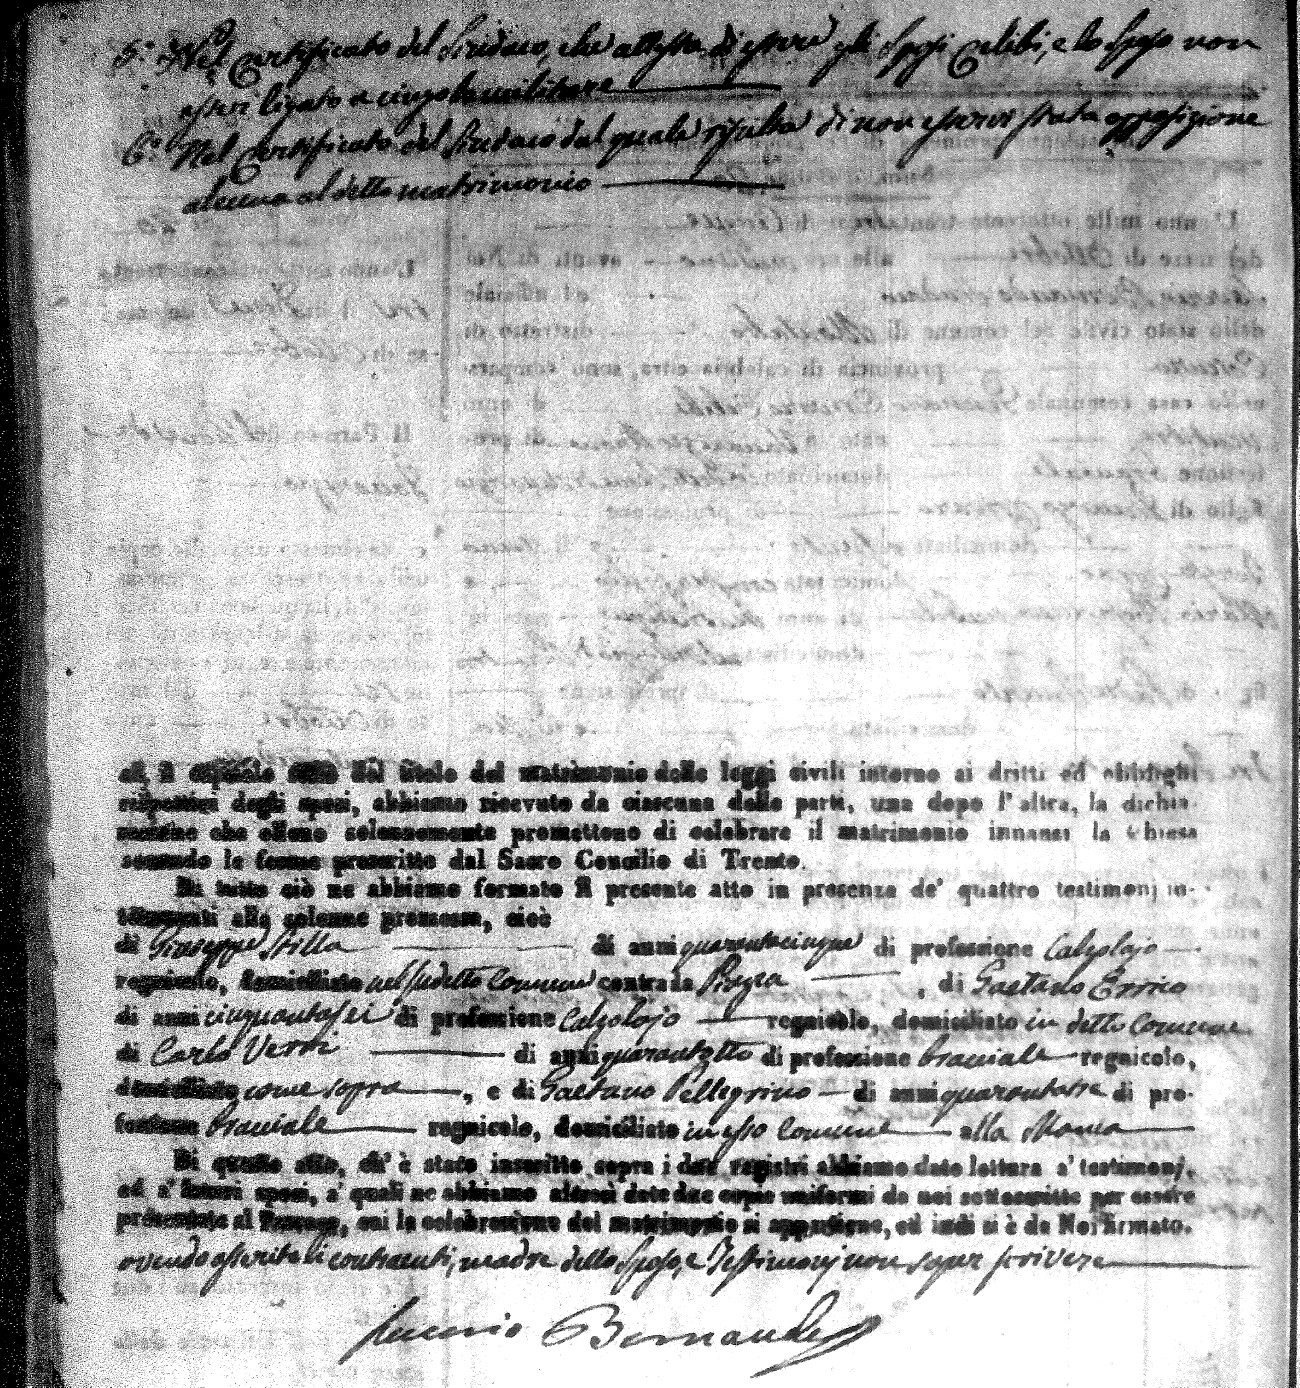 5.° Nel Certificato del Sindaco, che attesta di essere gli Sposi Celibi, e lo Sposo non
esser ligato a cingolo militare
6.° Nel Certificato del Sindaco dal quale risulta di non esservi stata opposizione
alcuna al detto matrimonio
ed il capitolo del titolo del matrimonio delle leggi civili intorno ai dritti ed obblighi
rispettivi degli sposi, abbiamo ricevuto da ciascuna delle parti, una dopo l'altra, la dichia-
razione che elleno solennemente promettono di celebrare il matrimonio innanzi la Chiesa
secondo le forme prescritte dal Sacro Concilio di Trento.
Di tutto ciò ne abbiamo formato il presente atto in presenza de' quattro testimonj in-
tervenuti alla solenne promessa, cioè
di Giuseppe Stilla di anni quarantacinque di professione Calzolajo
regnicolo, domiciliato nel sudetto Comune contrada Piazza, di Gaetano Errico
di anni cinquantasei di professione Calzolajo regnicolo, domiciliato in detto Comune
di Carlo Verri di anni quarantotto di professione bracciale regnicolo,
domiciliato come sopra, e di Gaetano Pellegrino di anni quarantatre di pro-
fessione bracciale regnicolo, domiciliato in esso Comune alla
Di questo atto, ch' è stato inscritto sopra i due registri abbiamo dato lettura a' testimonj,
ed a' futuri sposi, a' quali ne abbiamo altresì date due copie uniformi da noi sottoscritte per essere
presentate al Parroco, cui la celebrazione del matrimonio si appartiene, ed indi si è da Noi firmato.
avendo asserito li contraenti, madre dello Sposo, e Testimonj non saper scrivere
Bernaudo